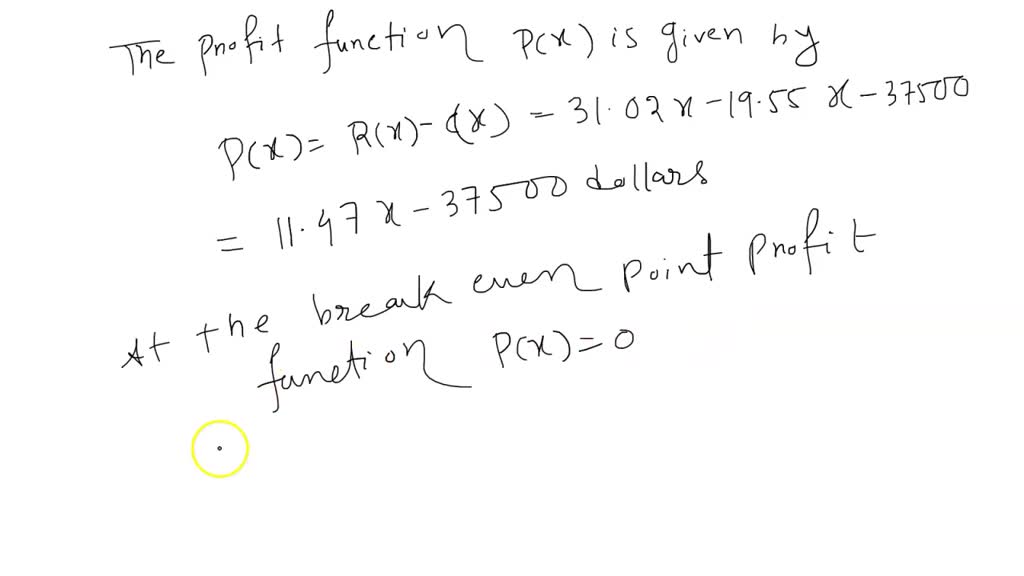 The profit function P(x) is given by
P(x) = R(x) - C(x) = 31.02 x - 19.55 x - 37500
= 11.47 x - 37500 dollars
At the break even point profit
function P(x) = 0